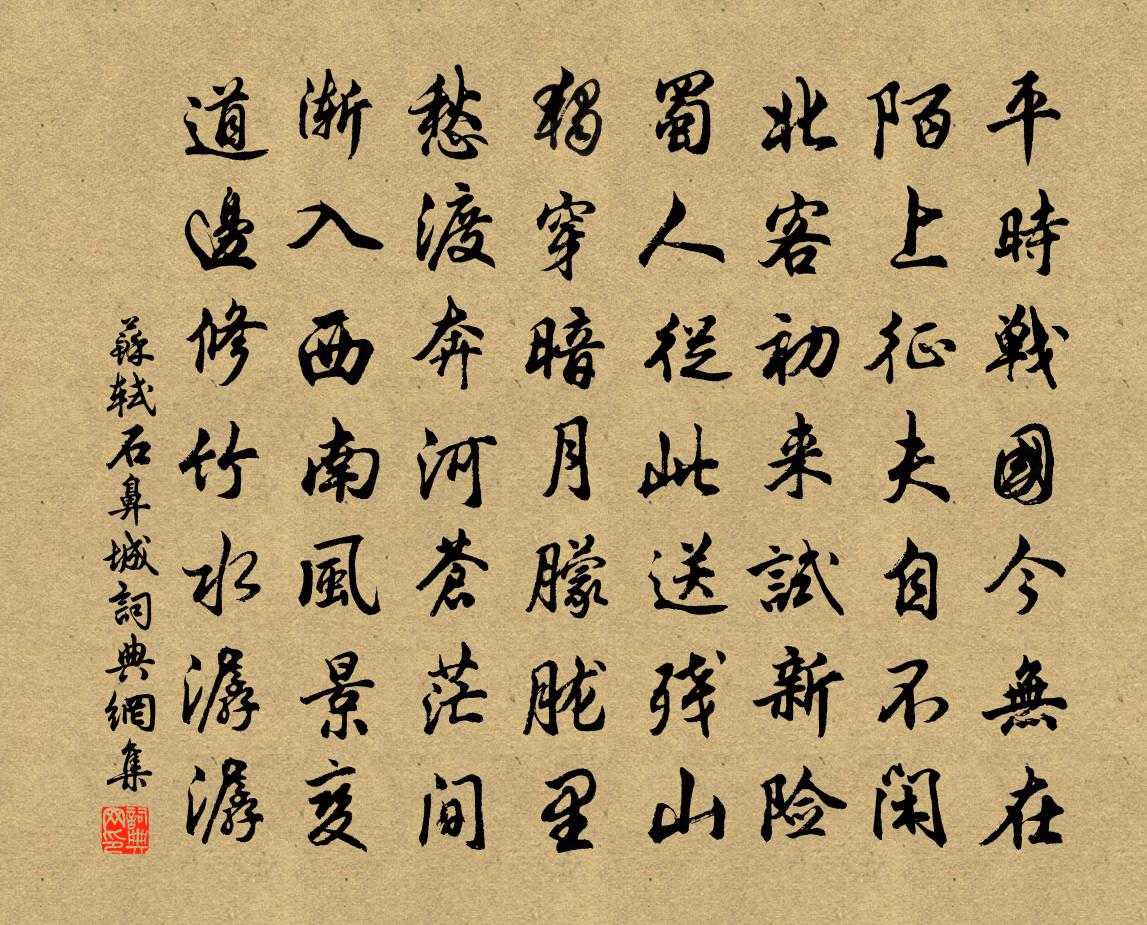 平時戦國今無在
陌上征夫自不閑
北客初来試新险
蜀人從此送残山
獨穿暗月朦胧里
愁渡奔河蒼茫间
漸入西南風景变
道邊修竹水潺潺
蘇軾石鼻城詞典網集
詞典网印